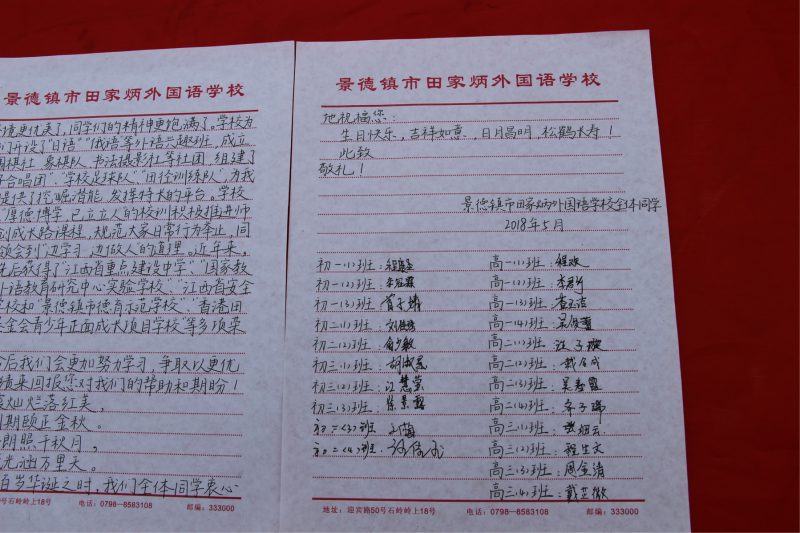 景德镇市田家炳外国语学校
境更优美了,同学们的精神更饱满了。学校为
们开设了“日语”“俄语等外语兴趣班,成立
围棋社、象棋队、书法摄影社等社团,组建了
合唱团”、“学校足球队”“田径训练队”,为我
提供了挖掘潜能,发挥特长的平台。学校
厚德博学,己立立人的校训积极推进师
创成长路课程,规范大家日常行为举止,同
领会到“边学习,边做人”的真理。近年来,
先后获得了“江西省重点建设中学”、“国家教
外语教育研究中心实验学校”、“江西省安全
学校和“景德镇市德育示范学校”、“香港田
基金会青少年正面成长项目学校”等多项荣
后我们会更加努力学习,争取以更优
绩来回报您对我们的帮助和期盼!
灿烂落红美,
期颐正金秋。
朗照千秋月,
光涵万里天。
百岁华诞之时,我们全体同学衷心
号石岭岭上18号 电话:0798—8583108 邮编:333000
景德镇市田家炳外国语学校
地祝福您:
生日快乐,吉祥如意,日月昌明,松鹤长寿!
此致
敬礼!
景德镇市田家炳外国语学校全体同学
2018年5月
初一(1)班:
初一(2)班:
初一(3)班:
初二(1)班:
初二(2)班:
初三(1)班:
初三(2)班:江慧莹
初三(3)班:
初二(3)班
初二(4)班.
高一(1)班:程欢
高一(2)班:
高一(3)班:
高一(4)班:
高二(1)班:汪子璇
高二(2)班:
高二(3)班:吴春霞
高二(4)班:
高三(1)班:
高三(2)班:程生文
高三(3)班:周金清
高三(4)班:戴芷微
地址:迎宾路50号石岭岭上18号 电话:0798—8583108 邮编:333000